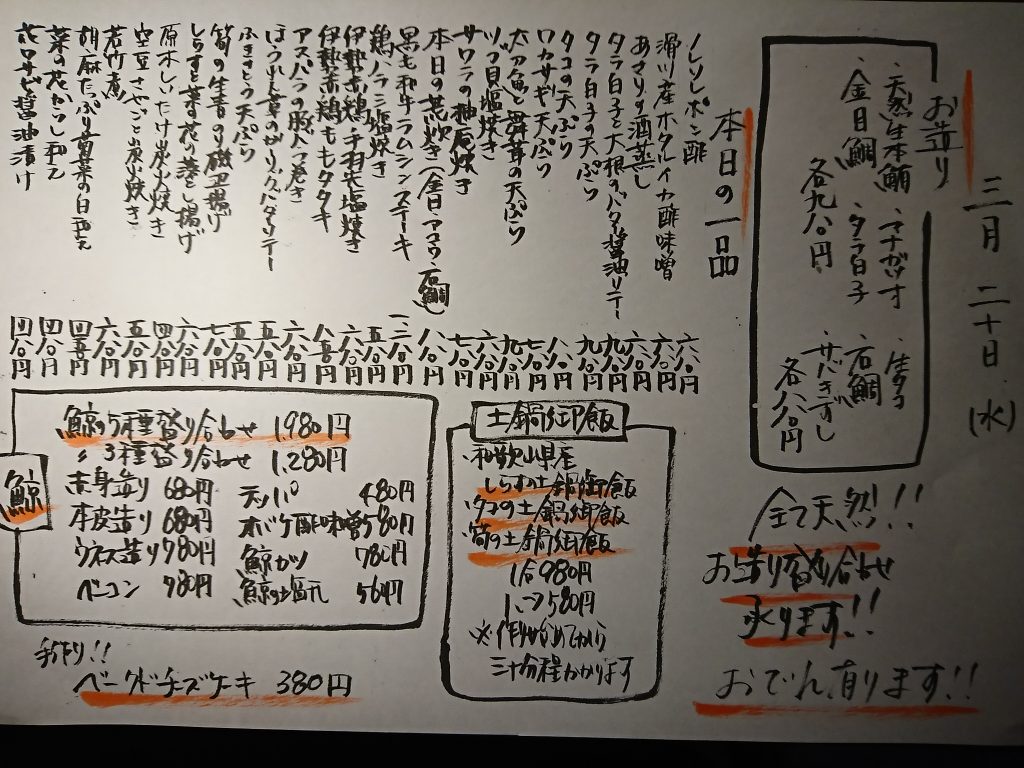 三月 二十日 (水)
お造り
・天然生本鮪 ・マナガツオ ・生タコ
・金目鯛 ・タラ白子 ・石鯛
各九八〇円 ・サバきずし
各八八〇円
本日の一品
ノレソレポン酢 六八〇円
滑川産ホタルイカ酢味噌 六八〇円
あさりの酒蒸し 六八〇円
タラ白子と大根のバタ醤油ソテー 九八〇円
タラ白子の天ぷら 九八〇円
タコの天ぷら 八八〇円
ワカサギ天ぷら 七八〇円
太刀魚と舞茸の天ぷら 九八〇円
ツブ貝塩焼き 六八〇円
サワラの柚庵焼き 七八〇円
本日の荒炊き(金目・アコウ・石鯛) 八八〇円
黒毛和牛ラムシンステーキ
鶏ハラミ塩焼き 五八〇円
伊勢赤鶏 手羽先塩焼き 六八〇円
伊勢赤鶏ももタタキ 八五〇円
アスパラの豚バラ巻き 六八〇円
ほうれん草のガーリックバターソテー 五八〇円
ふきのとう天ぷら 五五〇円
筍の生青のり磯辺揚げ 七八〇円
しらすと菜の花の落とし揚げ 六八〇円
原木しいたけ炭火焼き 四八〇円
空豆さやごと炭火焼き 五八〇円
若竹煮 六八〇円
胡麻たっぷり菊菜の白和え 四五〇円
菜の花からし和え 四八〇円
花ワサビ醤油漬け 四八〇円
鯨
鯨の5種盛り合わせ 1,980円
〃 3種盛り合わせ 1,280円
赤身造り 680円 テッパ 480円
本皮造り 680円 オバケ酢味噌 580円
ウネス造り 780円 鯨カツ 780円
ベーコン 980円 鯨の塩 560円
土鍋御飯
・和歌山県産
しらすの土鍋御飯
・タコの土鍋御飯
・筍の土鍋御飯
1合980円
580円
※作りはじめてから
三十分程かかります
全て天然!!
お造り盛り合わせ
承ります!!
おでん有ります!!
手作り!!
ベークドチーズケーキ 380円